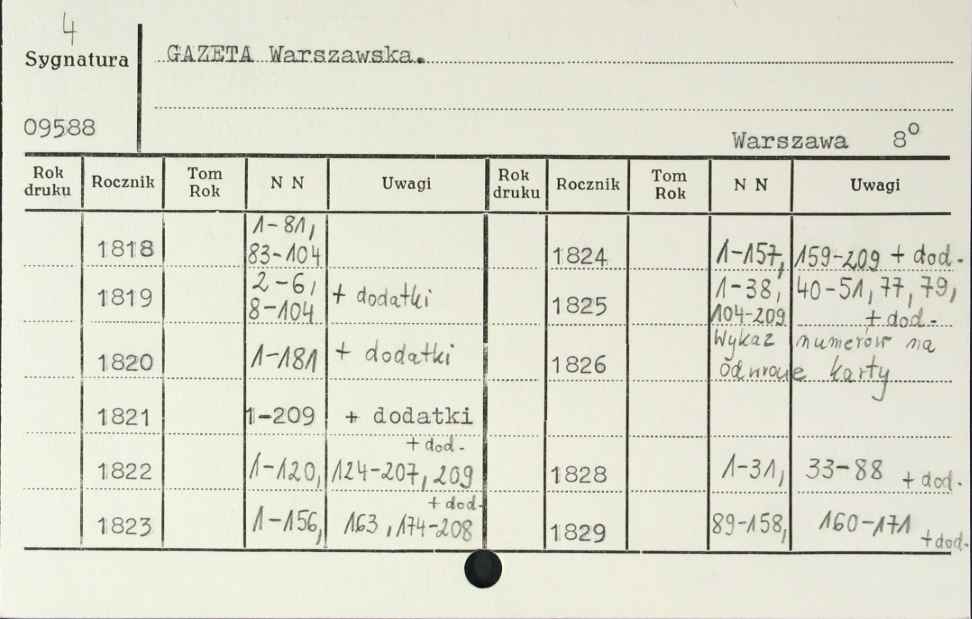 4
Sygnatura GAZETA Warszawska.
09588 Warszawa 8°
Rok druku Rocznik Tom Rok N N Uwagi Rok druku Rocznik Tom Rok N N Uwagi
1818 1-81, 83-104 1824 1-157, 159-209 + dod.
1819 2-6, 8-104 + dodatki 1825 1-38, 40-51, 77, 79, 104-209 + dod.
1820 1-181 + dodatki 1826 Wykaz numerów na odwrocie karty
1821 1-209 + dodatki
1822 1-120, 124-207, 209 + dod. 1828 1-31, 33-88 + dod.
1823 1-156, 163, 174-208 + dod. 1829 89-158, 160-171 + dod.